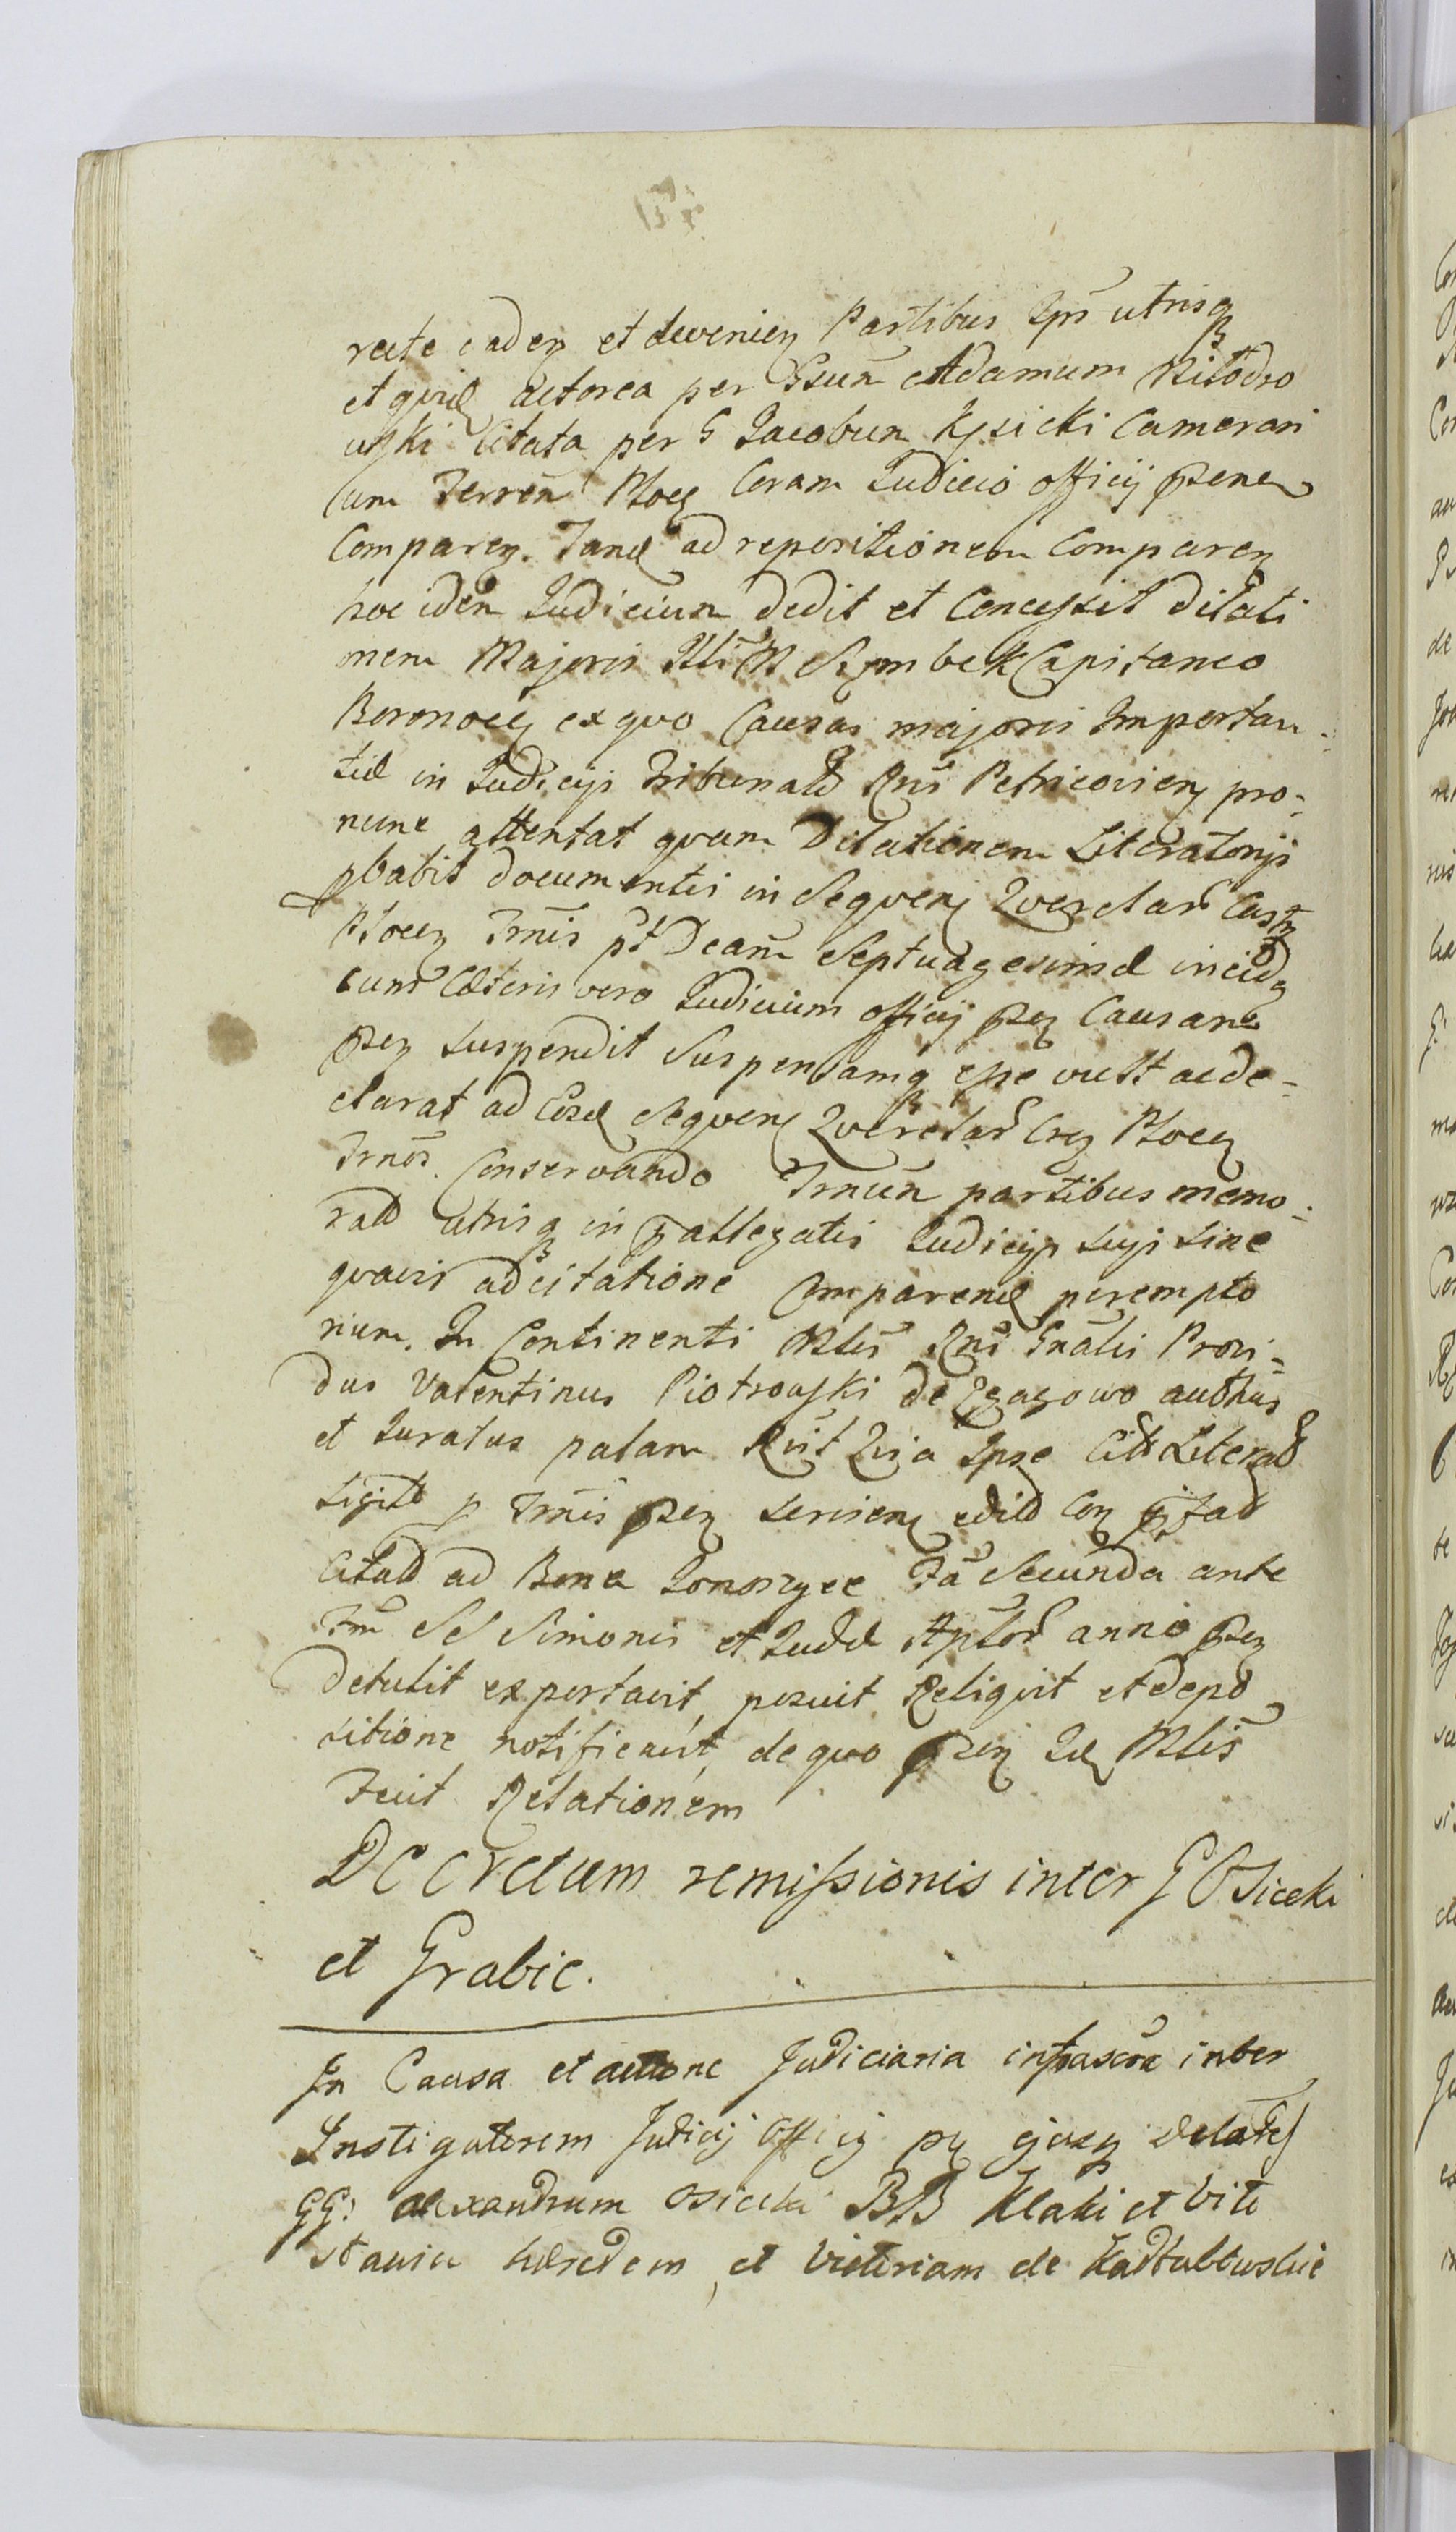 recte caden et devenien Partibus Ipŝ utrisq
et quid Actorea per Gsum Adamum Nilodro
uski Citata per G Jacobum Kęsicki Camerari
um Terren Plocen Coram Judicio officij psene
Comparen. Tand ad repositionem Comparen
hoc idem Judicium dedit et Concessit dilati
onem Majoris Illi M Szembek Capitaneo
ex quo Causas majoris Importan-
tiæ in Judicijs Tribunald Rnī Petricovien pro-
nunc attentat quam Dilationem Literatorijs
pbabit documentis in Sequen Querelar Castr
Plocen Trnis pt Dcam Septuagesimæ inciden
cum Cæteris vero Judicium officij psen Causam
psen suspendit Suspensamq esse vult ac de-
clarat ad Eosd Sequen Querelar Cren Plocen
Trnos Conservando Trnum partibus memo-
ratt utrisq in pallegatis Judicijs suis sine
quavis adcitatione Comparend perempto
rium. In Continenti Mlis Rnī Gnalis Provi-
dus Valentinus Piotrowski de authus
et Juratus palam Rnit Quia Ipse Citt Literatt
p Trnis psen servien edit Con
Citatt ad Bona Fa Secunda ante
Ftm SS Simonis et Judæ Aplor anno psen
detulit exportavit, posuit Reliquit et depo
sitione notificavit, de quo psen Id Mlis
Fcit Relationem
Decretum remissionis inter G Osiecki
et Grabie.
In Causa et actione Judiciaria infrascra inter
Instigatorem Judicij Officij pn ejusq delates
GG: Alexandrum Osiecki BB Klaki et Vito
stawia hæredem et Victoriam de